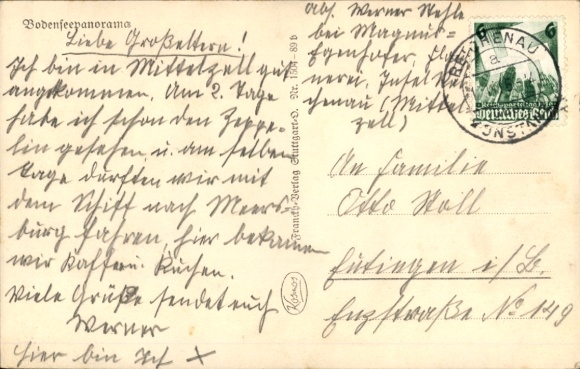 Bodenseepanorama
Liebe Großeltern!
Ich bin in Mittelzell gut
angekommen. Am 2. Tage
habe ich schon den Zeppe-
lin gesehen u. am selben
Tage durften wir mit
dem Schiff nach Meers-
burg fahren, hier bekamen
wir Kaffe u. Kuchen.
Viele Grüße sendet euch
Werner
hier bin Ich x
Franckh-Verlag Stuttgart-O. Nr. 1504-89b
Kosmos
Abs. Werner Nehle
bei Magnus
Egenhofer,
nerei, Insel
chenau (Mittel
zell)
6 6
REICHENAU
a
KONSTANZ
Reichsparteitag 1936
Deutsches Reich
An Familie
Otto Stoll
Eutingen i/B.
Enzstraße No 149